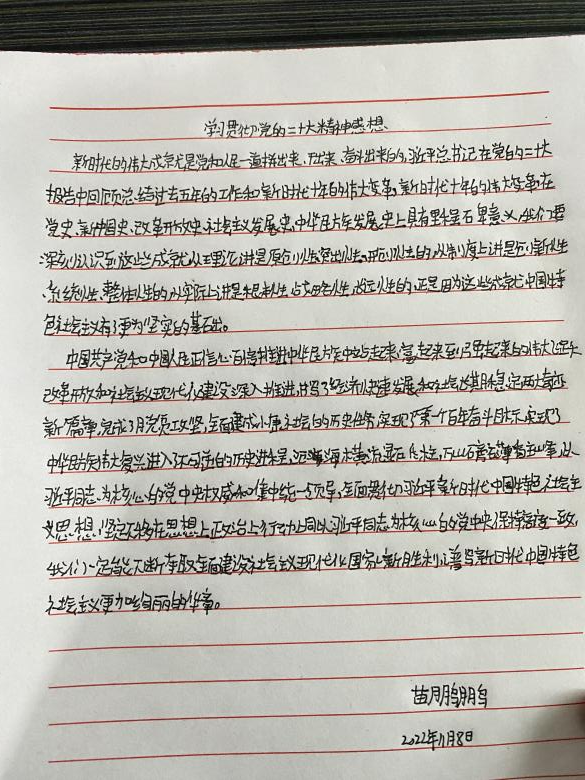 学习贯彻党的二十大精神感想
新时代的伟大成就是党和人民一道拼出来、干出来、奋斗出来的,习近平总书记在党的二十大
报告中回顾总结过去五年的工作和新时代十年的伟大变革,新时代十年的伟大变革,在
党史、新中国史、改革开放史、社会主义发展史、中华民族发展史上具有里程碑意义,我们要
深刻认识到这些成就从理论上讲是原创性、突出性、开创性的,从制度上讲是创新性
系统性、整体性的,从实际上讲是根本性、战略性、的,正是因为这些成就中国特
色社会主义有了更为坚实的基础。
中国共产党和中国人民正信心百倍推进中华民族从站起来、富起来到强起来的伟大飞跃
改革开放和社会主义现代化建设深入推进,书写了经济快速发展和社会长期稳定两大奇迹
新篇章,完成了脱贫攻坚,全面建成小康社会的历史任务,实现了第一个百年奋斗目标,实现了
中华民族伟大复兴进入不可逆的历史进程,沧海横流显砥柱,万山磅礴看主峰,以
习近平同志为核心的党中央权威和集中统一领导,全面贯彻习近平新时代中国特色社会主
义思想,坚定不移在思想上政治上行动上同以习近平同志为核心的党中央保持高度一致,
我们一定能不断夺取全面建设社会主义现代化国家新胜利,谱写新时代中国特色
社会主义更加绚丽的华章。
苗鹏鹏
2022年11月8日